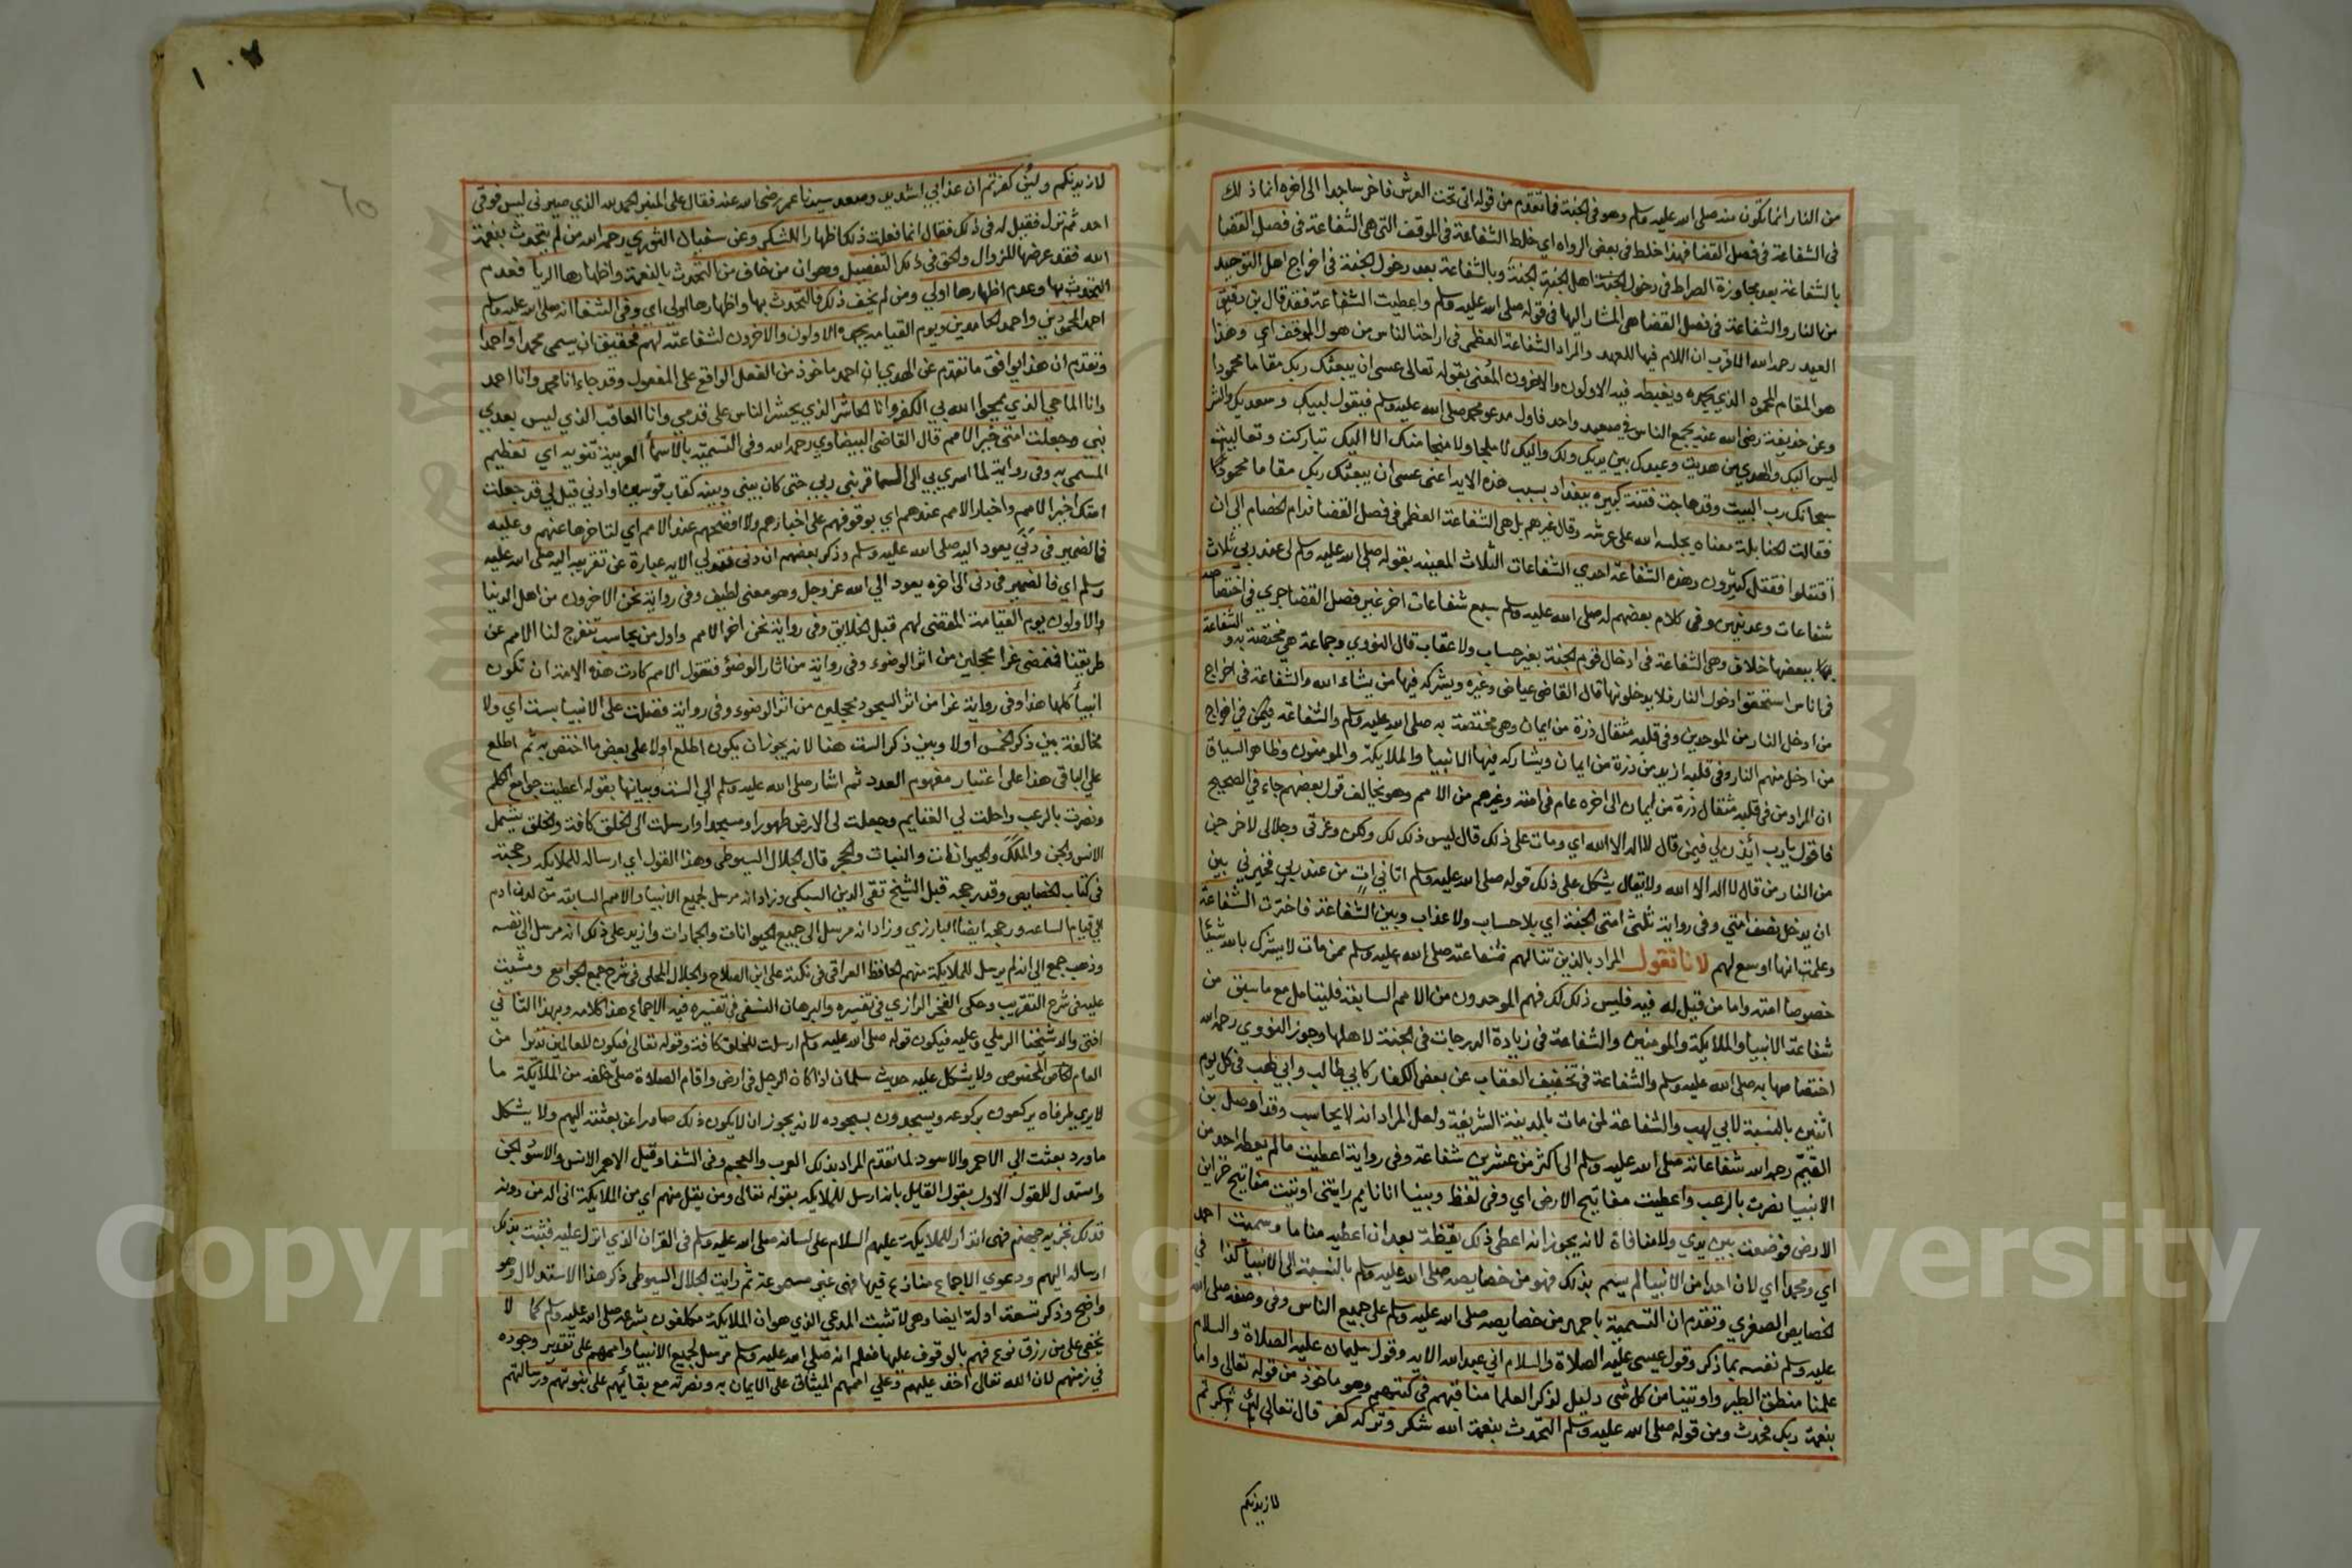 من النار انما تكون منه صلى الله عليه وسلم وهو في الجنة فما تقدم من قوله اتى تحت العرش فاخر ساجدا الى اخره انما ذلك
في الشفاعة في فصل القضا فهذا خلط في بعض الرواه اي خلط الشفاعة في الموقف التي هي الشفاعة في فصل القضا
بالشفاعة بعد مجاوزة الصراط في دخول اهل الجنة الجنة وبالشفاعة بعد دخول الجنة في اخراج اهل التوحيد
من النار والشفاعة في فصل القضا هي المشار اليها في قوله صلى الله عليه وسلم واعطيت الشفاعة فقد قال بن دقيق
العيد رحمه الله الاقرب ان اللام فيها للعهد والمراد الشفاعة العظمى في اراحة الناس من هول الموقف اي وهذا
هو المقام المحمود الذي يحمده ويغبطه فيه الاولون والاخرون المعنى بقوله تعالى عسى ان يبعثك ربك مقاما محمودا
وعن حذيفة رضي الله عنه يجمع الناس في صعيد واحد فاول مدعو محمد صلى الله عليه وسلم فيقول لبيك وسعديك والشر
ليس اليك والمهدي من هديت وعبدك بين يديك ولك واليك لا ملجا ولا منجا منك الا اليك تباركت وتعاليت
سبحانك رب البيت وقد هاجت فتنة كبيره ببغداد بسبب هذه الايه اعنى عسى ان يبعثك ربك مقاما محمودا
فقالت الحنابلة معناه يجلسه الله على عرشه وقال غيرهم بل هي الشفاعة العظمى في فصل القضا فدام الخصام الى ان
اقتتلوا فقتل كثيرون وهذه الشفاعة احدي الشفاعات الثلاث المعينه بقوله صلى الله عليه وسلم لي عند ربي ثلاث
شفاعات وعدنيهن وفى كلام بعضهم له صلى الله عليه وسلم سبع شفاعات اخر غير فصل القضا جري في اختصاصه
ببعضها خلاف وهي الشفاعة في ادخال قوم الجنة بغير حساب ولا عقاب قال النووي وجماعة هي مختصة به والشفاعة
في اناس استحقوا دخول النار فلا يدخلونها قال القاضي عياض وغيره ويشركه فيها من يشاء الله والشفاعة في اخراج
من ادخل النار من الموحدين وفى قلبه مثقال ذرة من ايمان وهي مختصة به صلى الله عليه وسلم والشفاعة في اخراج
من ادخل منهم النار وفى قلبه ازيد من ذرة من ايمان ويشاركه فيها الانبيا والملايكة والمومنون وظاهر السياق
ان المراد من في قلبه مثقال ذرة من ايمان الى اخره عام في امته وغيرهم من الامم وهو يخالف قول بعضهم جاء في الصحيح
فاقول يارب ائذن لي فيمن قال لا اله الا الله اي ومات على ذلك قال ليس ذلك لك ولكن وعزتى وجلالى لاخرجن
من النار من قال لا اله الا الله ولا يقال يشكل على ذلك قوله صلى الله عليه وسلم اتاني آت من عند ربي فخيرني بين
ان يدخل نصف امتي وفى رواية ثلثى امتى الجنة اي بلا حساب ولا عذاب وبين الشفاعة فاخترت الشفاعة
وعلمت انها اوسع لهم لانا نقول المراد بالذين تنالهم شفاعته صلى الله عليه وسلم ممن مات لا يشرك بالله شيئا
خصوصا امته واما من قيل له فيه فليس ذلك لك فهم الموحدون من الامم السابقة فليتامل مع ما سبق من
شفاعة الانبيا والملايكة والمومنين والشفاعة في زيادة الدرجات في الجنة لاهلها وجوز النووي رحمه الله
اختصاصها به صلى الله عليه وسلم والشفاعة في تخفيف العقاب عن بعض الكفار كابي طالب وابي لهب في كل يوم
اثنين بالنسبة لابي لهب والشفاعة لمن مات بالمدينة الشريفة ولعل المراد انه لا يحاسب وقد اوصل بن
القيم رحمه الله شفاعاته صلى الله عليه وسلم الى اكثر من عشرين شفاعة وفى رواية اعطيت ما لم يعطه احد من
الانبيا نصرت بالرعب واعطيت مفاتيح الارض اي وفى لفظ وبينا انا نايم رايتنى اوتيت مفاتيح خزاين
الارض فوضعت بين يدي ولا منافاة لانه يجوز انه اعطى ذلك يقظة بعد ان اعطيه مناما وسميت احمد
اي ومحمدا اي لان احدا من الانبيا لم يسم بذلك فهو من خصايصه صلى الله عليه وسلم بالنسبة الى الانبيا كذا في
الخصايص الصغري وتقدم ان التسمية باحمد من خصايصه صلى الله عليه وسلم على جميع الناس وفى وصفه صلى الله
عليه وسلم نفسه بما ذكر وقول عيسى عليه الصلاة والسلام اني عبد الله الايه وقول سليمان عليه الصلاة والسلام
علمنا منطق الطير واوتينا من كل شى دليل لذكر العلما مناقبهم في كتبهم وهو ماخوذ من قوله تعالى واما
بنعمة ربك فحدث ومن قوله صلى الله عليه وسلم التحدث بنعمة الله شكر وتركه كفر قال تعالى لئن شكرتم
لازيدنكم
لازيدنكم ولئن كفرتم ان عذابي لشديد وصعد سيدنا عمر رضي الله عنه فقال على المنبر الحمد لله الذي صيرني ليس فوقي
احد ثم نزل فقيل له في ذلك فقال انما فعلت ذلك اظهارا للشكر وعن سفيان الثوري رحمه الله من لم يتحدث بنعمة
الله فقد عرضها للزوال والحق في ذلك التفصيل وهو ان من خاف من التحدث بالنعمة واظهارها الريا فعدم
التحدث بها وعدم اظهارها اولي ومن لم يخف ذلك فالتحدث بها واظهارها اولي اي وفى الشفا انه صلى الله عليه وسلم
احمد المحمودين واحمد الحامدين ويوم القيامة يحمده الاولون والاخرون لشفاعته لهم فحقيق ان يسمى محمدا واحمدا
وتقدم ان هذا يوافق ما تقدم عن الهدي ان احمد ماخوذ من الفعل الواقع على المفعول وقد جاء انا محمد وانا احمد
وانا الماحي الذي يمحوا الله بي الكفر وانا الحاشر الذي يحشر الناس على قدمي وانا العاقب الذي ليس بعدي
نبي وجعلت امتى خير الامم قال القاضى البيضاوي رحمه الله وفى التسمية بالاسماء العربية تنويه اي تعظيم
المسمى به وفى رواية لما اسري بي الى السما قربني ربي حتى كان بيني وبينه كقاب قوسين او ادني قيل لي قد جعلت
امتك اخر الامم واخبار الامم عندهم اي بوقوفهم على اخبارهم ولا افضحهم عند الامم اي لتاخرها عنهم وعليه
فالضمير في دنى يعود اليه صلى الله عليه وسلم وذكر بعضهم ان دنى فتدلي الايه عبارة عن تقريبه اليه صلى الله عليه
وسلم اي فالضمير في دنى الى اخره يعود الي الله عز وجل وهو معنى لطيف وفى رواية نحن الاخرون من اهل الدنيا
والاولون يوم القيامة المقضى لهم قبل الخلايق وفى رواية نحن اخر الامم واول من يحاسب تنفرج لنا الامم عن
طريقنا فنمضى غرا محجلين من اثر الوضوء وفى رواية من اثار الوضوء فتقول الامم كادت هذه الامة ان تكون
انبياء كلها هذا وفى رواية غرا من اثر السجود محجلين من اثر الوضوء وفى رواية فضلت على الانبيا بست اي ولا
مخالفة بين ذكر الخمس اولا وبين ذكر الست هنا لانه يجوز ان يكون اطلع اولا على بعض ما اختص به ثم اطلع
علي الباقي هذا على اعتبار مفهوم العدد ثم اشار صلى الله عليه وسلم الي الست وبيانها بقوله اعطيت جوامع الكلم
ونصرت بالرعب واحلت لي الغنايم وجعلت لى الارض طهورا ومسجدا وارسلت الى الخلق كافة والخلق يشمل
الانس والجن والملك والحيوانات والنبات والحجر قال الجلال السيوطي وهذا القول اي ارساله للملايكه رجحته
في كتاب الخصايص وقد رجحه قبل الشيخ تقي الدين السبكى وزاد انه مرسل لجميع الانبيا والامم السابقة من لدن ادم
الي قيام الساعه ورجحه ايضا البارزي وزاد انه مرسل الى جميع الحيوانات والجمادات وازيد على ذلك انه مرسل الى نفسه
وذهب جمع الي انه لم يرسل للملايكة منهم الحافظ العراقي في نكته على ابن الصلاح والجلال المحلى في شرح جمع الجوامع ومشيت
عليه في شرح التقريب وحكى الفخر الرازي في تفسيره والبرهان النسفى في تفسيره فيه الاجماع هذا كلامه وبهذا الثاني
افتى والد شيخنا الرملي وعليه فيكون قوله صلى الله عليه وسلم ارسلت للخلق كافة وقوله تعالى ليكون للعالمين نذيرا من
العام الخاص المخصوص ولا يشكل عليه حديث سلمان اذا كان الرجل في ارض واقام الصلاة صلى خلفه من الملايكة ما
لا يري طرفاه يركعون بركوعه ويسجدون بسجوده لانه يجوز ان لا يكون ذلك صادرا عن بعثته اليهم ولا يشكل
ما ورد بعثت الي الاحمر والاسود لما تقدم المراد بذلك العرب والعجم وفى الشفا وقيل الاحمر الانس والاسود الجن
واستدل للقول الاول بقول القايل بانه ارسل للملايكه بقوله تعالى ومن يقل منهم اي من الملايكة اني اله من دونه
فذلك نجزيه جهنم فهي انذار للملايكة عليهم السلام على لسانه صلى الله عليه وسلم في القران الذي انزل عليه فثبت بذلك
ارساله اليهم ودعوي الاجماع منازع فيها فهى غير مسموعة ثم رايت الجلال السيوطي ذكر هذا الاستدلال وهو
واضح وذكر تسعة ادلة ايضا وهي لا تثبت المدعي الذي هو ان الملايكة مكلفون بشرعه صلى الله عليه وسلم كما لا
يخفى على من رزق نوع فهم بالوقوف عليها فعلم انه صلى الله عليه وسلم مرسل لجميع الانبيا واممهم على تقدير وجوده
في زمنهم لان الله تعالى اخذ عليهم وعلي اممهم الميثاق على الايمان به ونصرته مع بقائهم على نبوتهم ورسالتهم
١٠٧
٦٥
Copyright © King Saud University